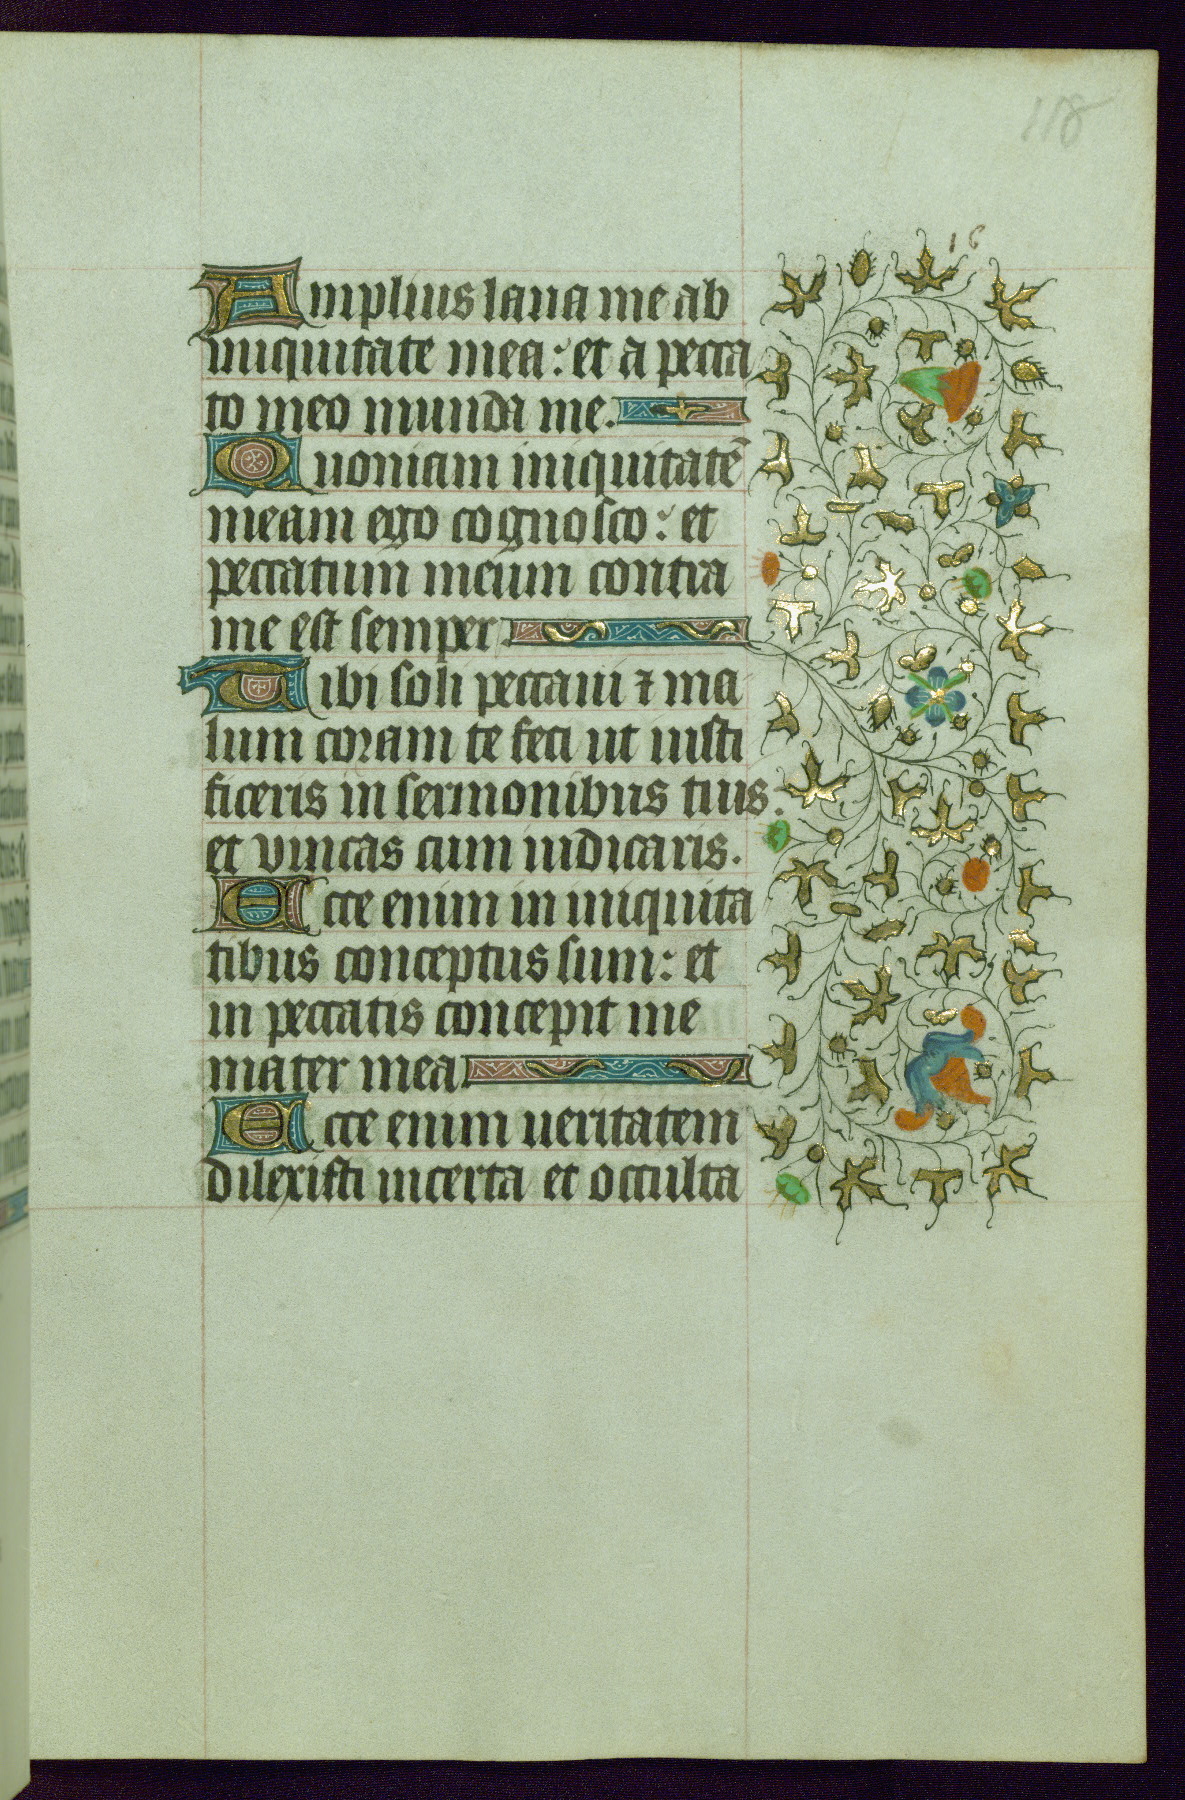 118
16
Amplius laua me ab
iniquitate mea: et a pecca
to meo munda me.
Quoniam iniquitatē
meam ego cognosco: et
peccatum meum contra
me est semper
Tibi soli peccaui ⁊ ma
lum coram te feci ut iusti
ficeris in sermonibus tuis.
et vincas cum iudicaris.
Ecce enim in iniquita
tibus conceptus sum: et
in peccatis concepit me
mater mea
Ecce enim ueritatem
dilexisti incerta et occulta